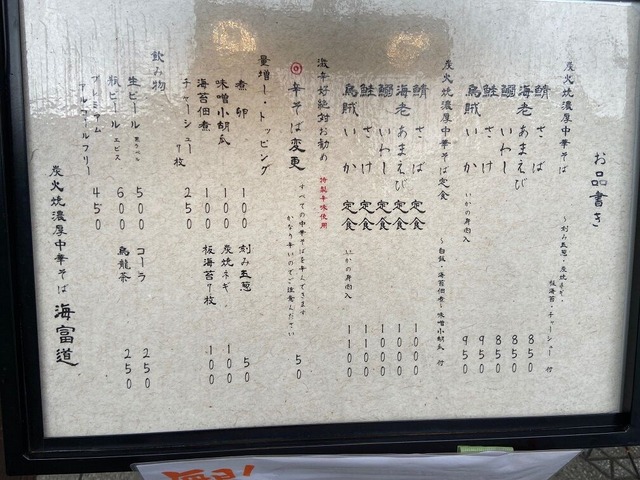 お品書き
炭火焼濃厚中華そば 〜刻み玉葱・炭焼ネギ・
板海苔・チャーシュー 付
鯖 さば 850
海老 あまえび 850
鰯 いわし 850
鮭 さけ 950
烏賊 いか いかの身肉入 950
炭火焼濃厚中華そば定食 〜白飯・海苔佃煮・味噌小胡瓜 付
鯖 さば 定食 1000
海老 あまえび 定食 1000
鰯 いわし 定食 1000
鮭 さけ 定食 1100
烏賊 いか 定食 いかの身肉入 1100
激辛好絶対お勧め 特製辛味使用
◎辛そば変更 すべての中華そばを辛くできます
かなり辛いのでご注意ください 50
量増し トッピング
煮卵 100 刻み玉葱 50
味噌小胡瓜 100 炭焼ネギ 100
海苔佃煮 100 板海苔9枚 100
チャーシュー 1枚 250
飲み物
生ビール 500 コーラ 250
瓶ビール エビス 600 烏龍茶 250
プレミアム
アルコールフリー 450
炭火焼濃厚中華そば 海富道